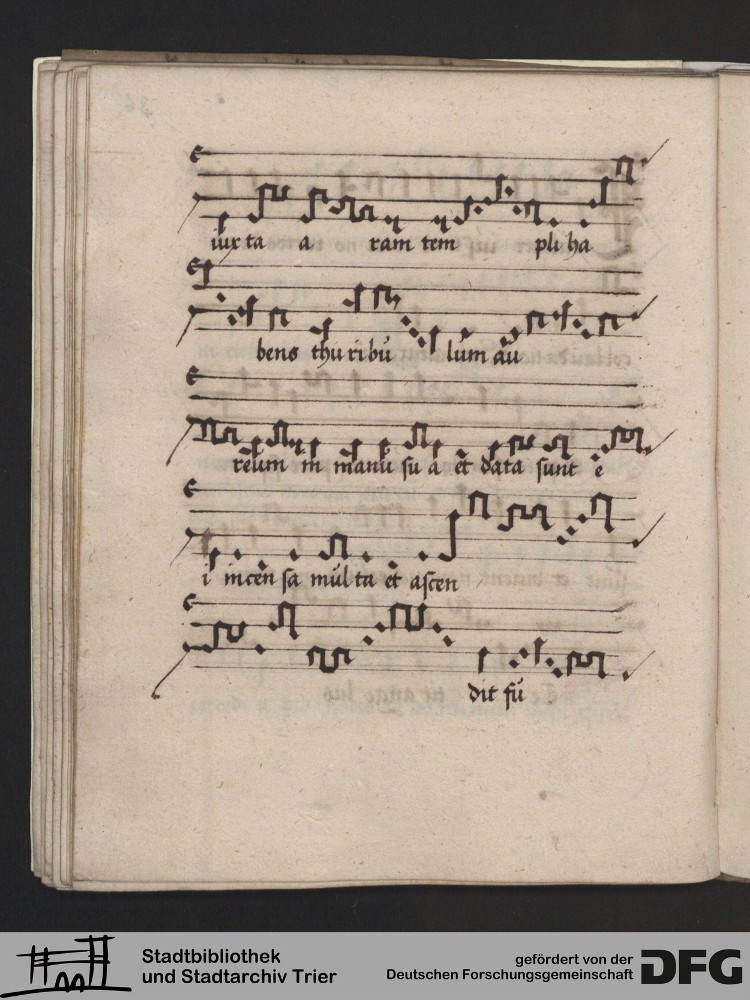 iuxta a ram tem pli ha
bens thuribu lum au
reum in manu sua et data sunt e
i incensa multa et ascen
dit fu
Stadtbibliothek
und Stadtarchiv Trier
gefördert von der
Deutschen Forschungsgemeinschaft
DFG